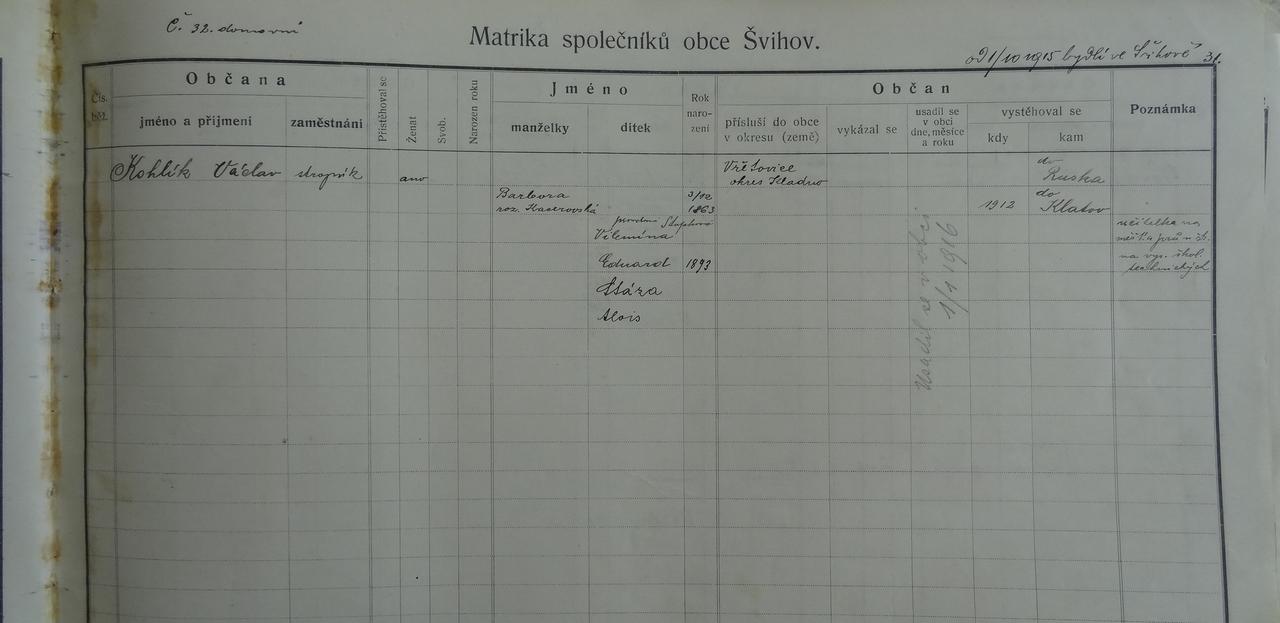 Č. 32. domovní
Matrika společníků obce Švihov.
od 1/10 1915 bydlí ve 31.
Čís. běž.
Občana
jméno a příjmení
zaměstnání
Přistěhoval se
Ženat
Svob.
Narozen roku
Jméno
manželky
dítek
Rok naro- zení
Občan
přísluší do obce v okresu (země)
vykázal se
usadil se v obci dne, měsíce a roku
vystěhoval se
kdy
kam
Poznámka
Kohlík Václav strojník ano
Vřetovice
okres Kladno
do
Ruska
Barbora 3/12
roz. 1863
1912
do
Klatov
Vilemína
učitelka na
Eduard 1893
na vyš. škol.
technických
Stáza
Alois
Usadil se v obci
1/1 1916